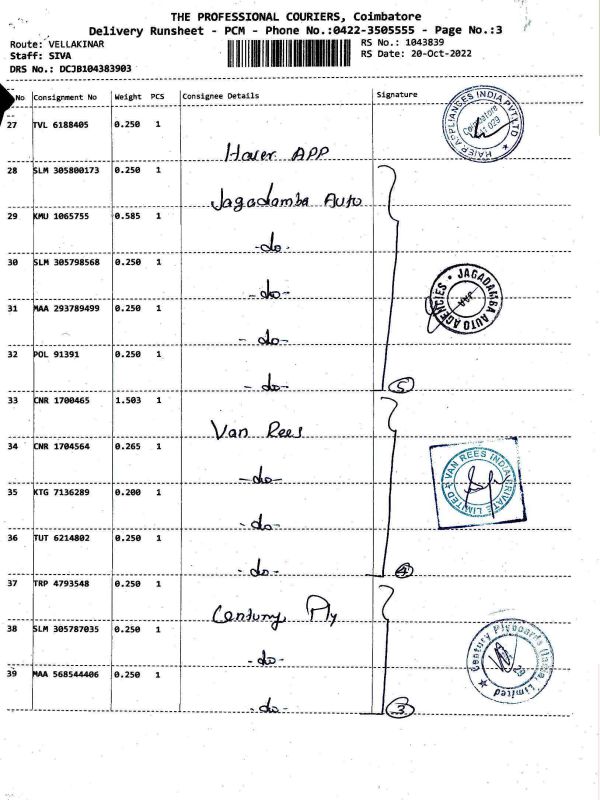 THE PROFESSIONAL COURIERS, Coimbatore
Delivery Runsheet - PCM - Phone No.:0422-3505555 - Page No.:3
Route: VELLAKINAR
RS No.: 1043839
Staff: SIVA
RS Date: 20-Oct-2022
DRS No.: DCJB104383903
No Consignment No Weight PCS Consignee Details Signature
27 TVL 6188405 0.250 1
HAIER APPLIANCES INDIA PVT LTD
Coimbatore
Haier APP
28 SLM 305800173 0.250 1
Jagadamba Auto
29 KMU 1065755 0.585 1
-do-
30 SLM 305798568 0.250 1
JAGADAMBA AUTO AGENCIES
JAA
-do-
31 MAA 293789499 0.250 1
-do-
32 POL 91391 0.250 1
-do-
5
33 CNR 1700465 1.503 1
Van Rees
34 CNR 1704564 0.265 1
VAN REES INDIA PRIVATE LIMITED
-do-
35 KTG 7136289 0.200 1
-do-
36 TUT 6214802 0.250 1
-do-
4
37 TRP 4793548 0.250 1
Century Ply
38 SLM 305787035 0.250 1
Century Plyboards (India) Limited
-do-
39 MAA 568544406 0.250 1
-do-
3